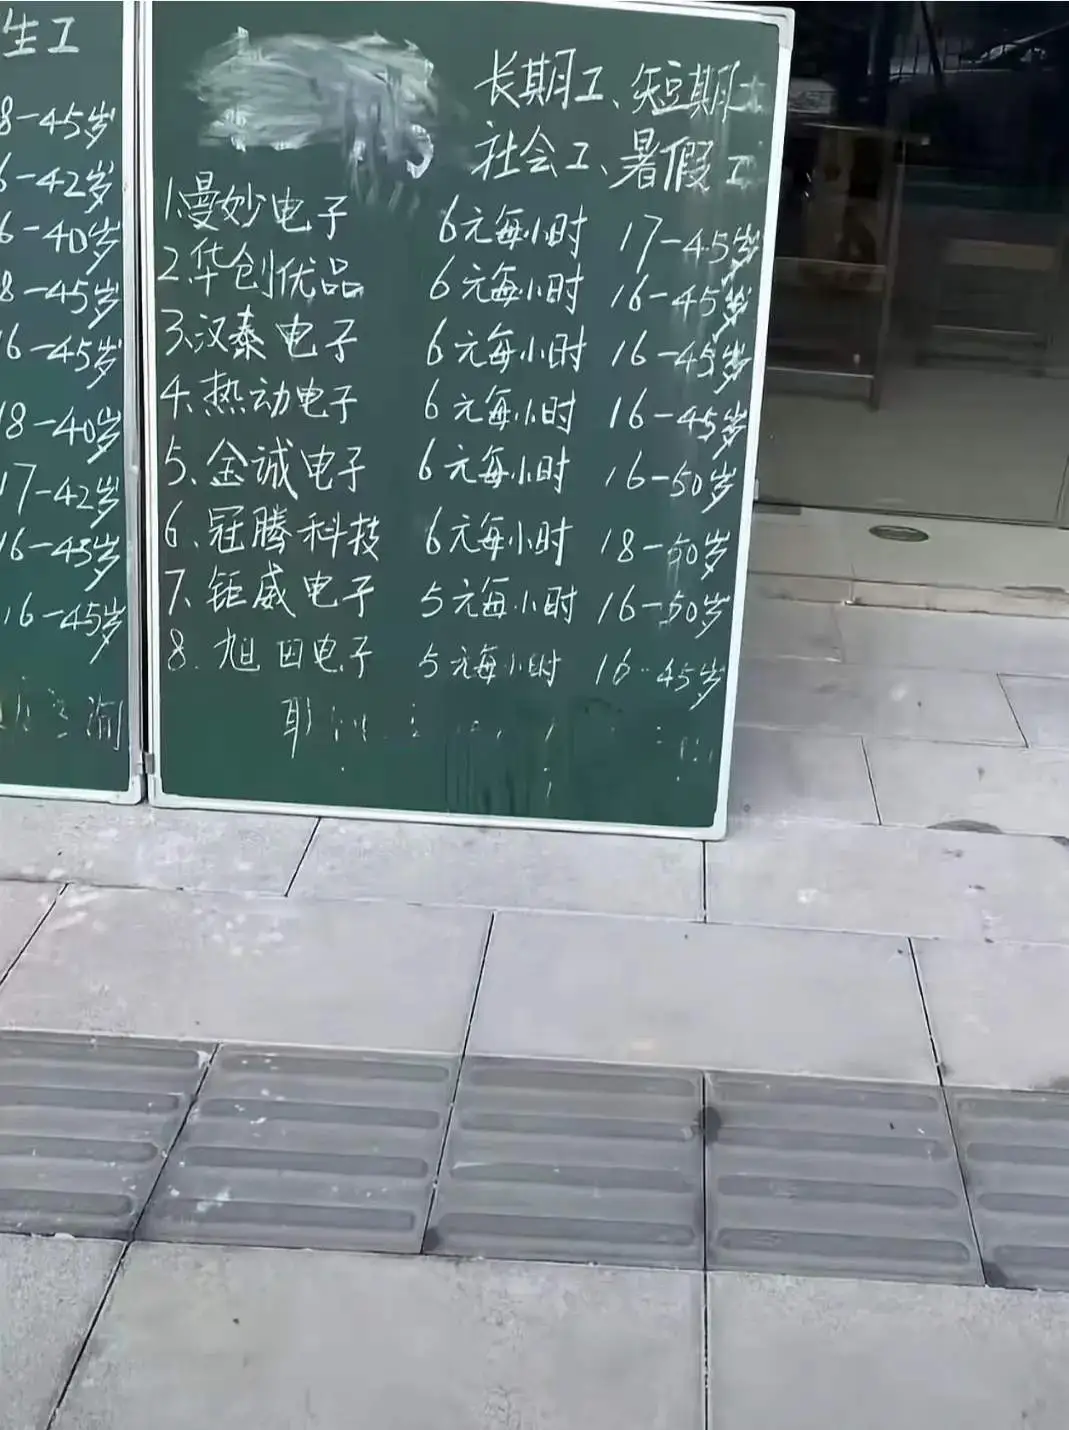 生工
8-45岁
6-42岁
6-40岁
8-45岁
16-45岁
18-40岁
17-42岁
16-45岁
16-45岁
渝
长期工、短期工
社会工、暑假工
1.曼妙电子 6元每小时 17-45岁
2.华创优品 6元每小时 16-45岁
3.汉泰电子 6元每小时 16-45岁
4.热动电子 6元每小时 16-45岁
5.金诚电子 6元每小时 16-50岁
6.冠腾科技 6元每小时 18-50岁
7.钜威电子 5元每小时 16-50岁
8.旭田电子 5元每小时 16-45岁